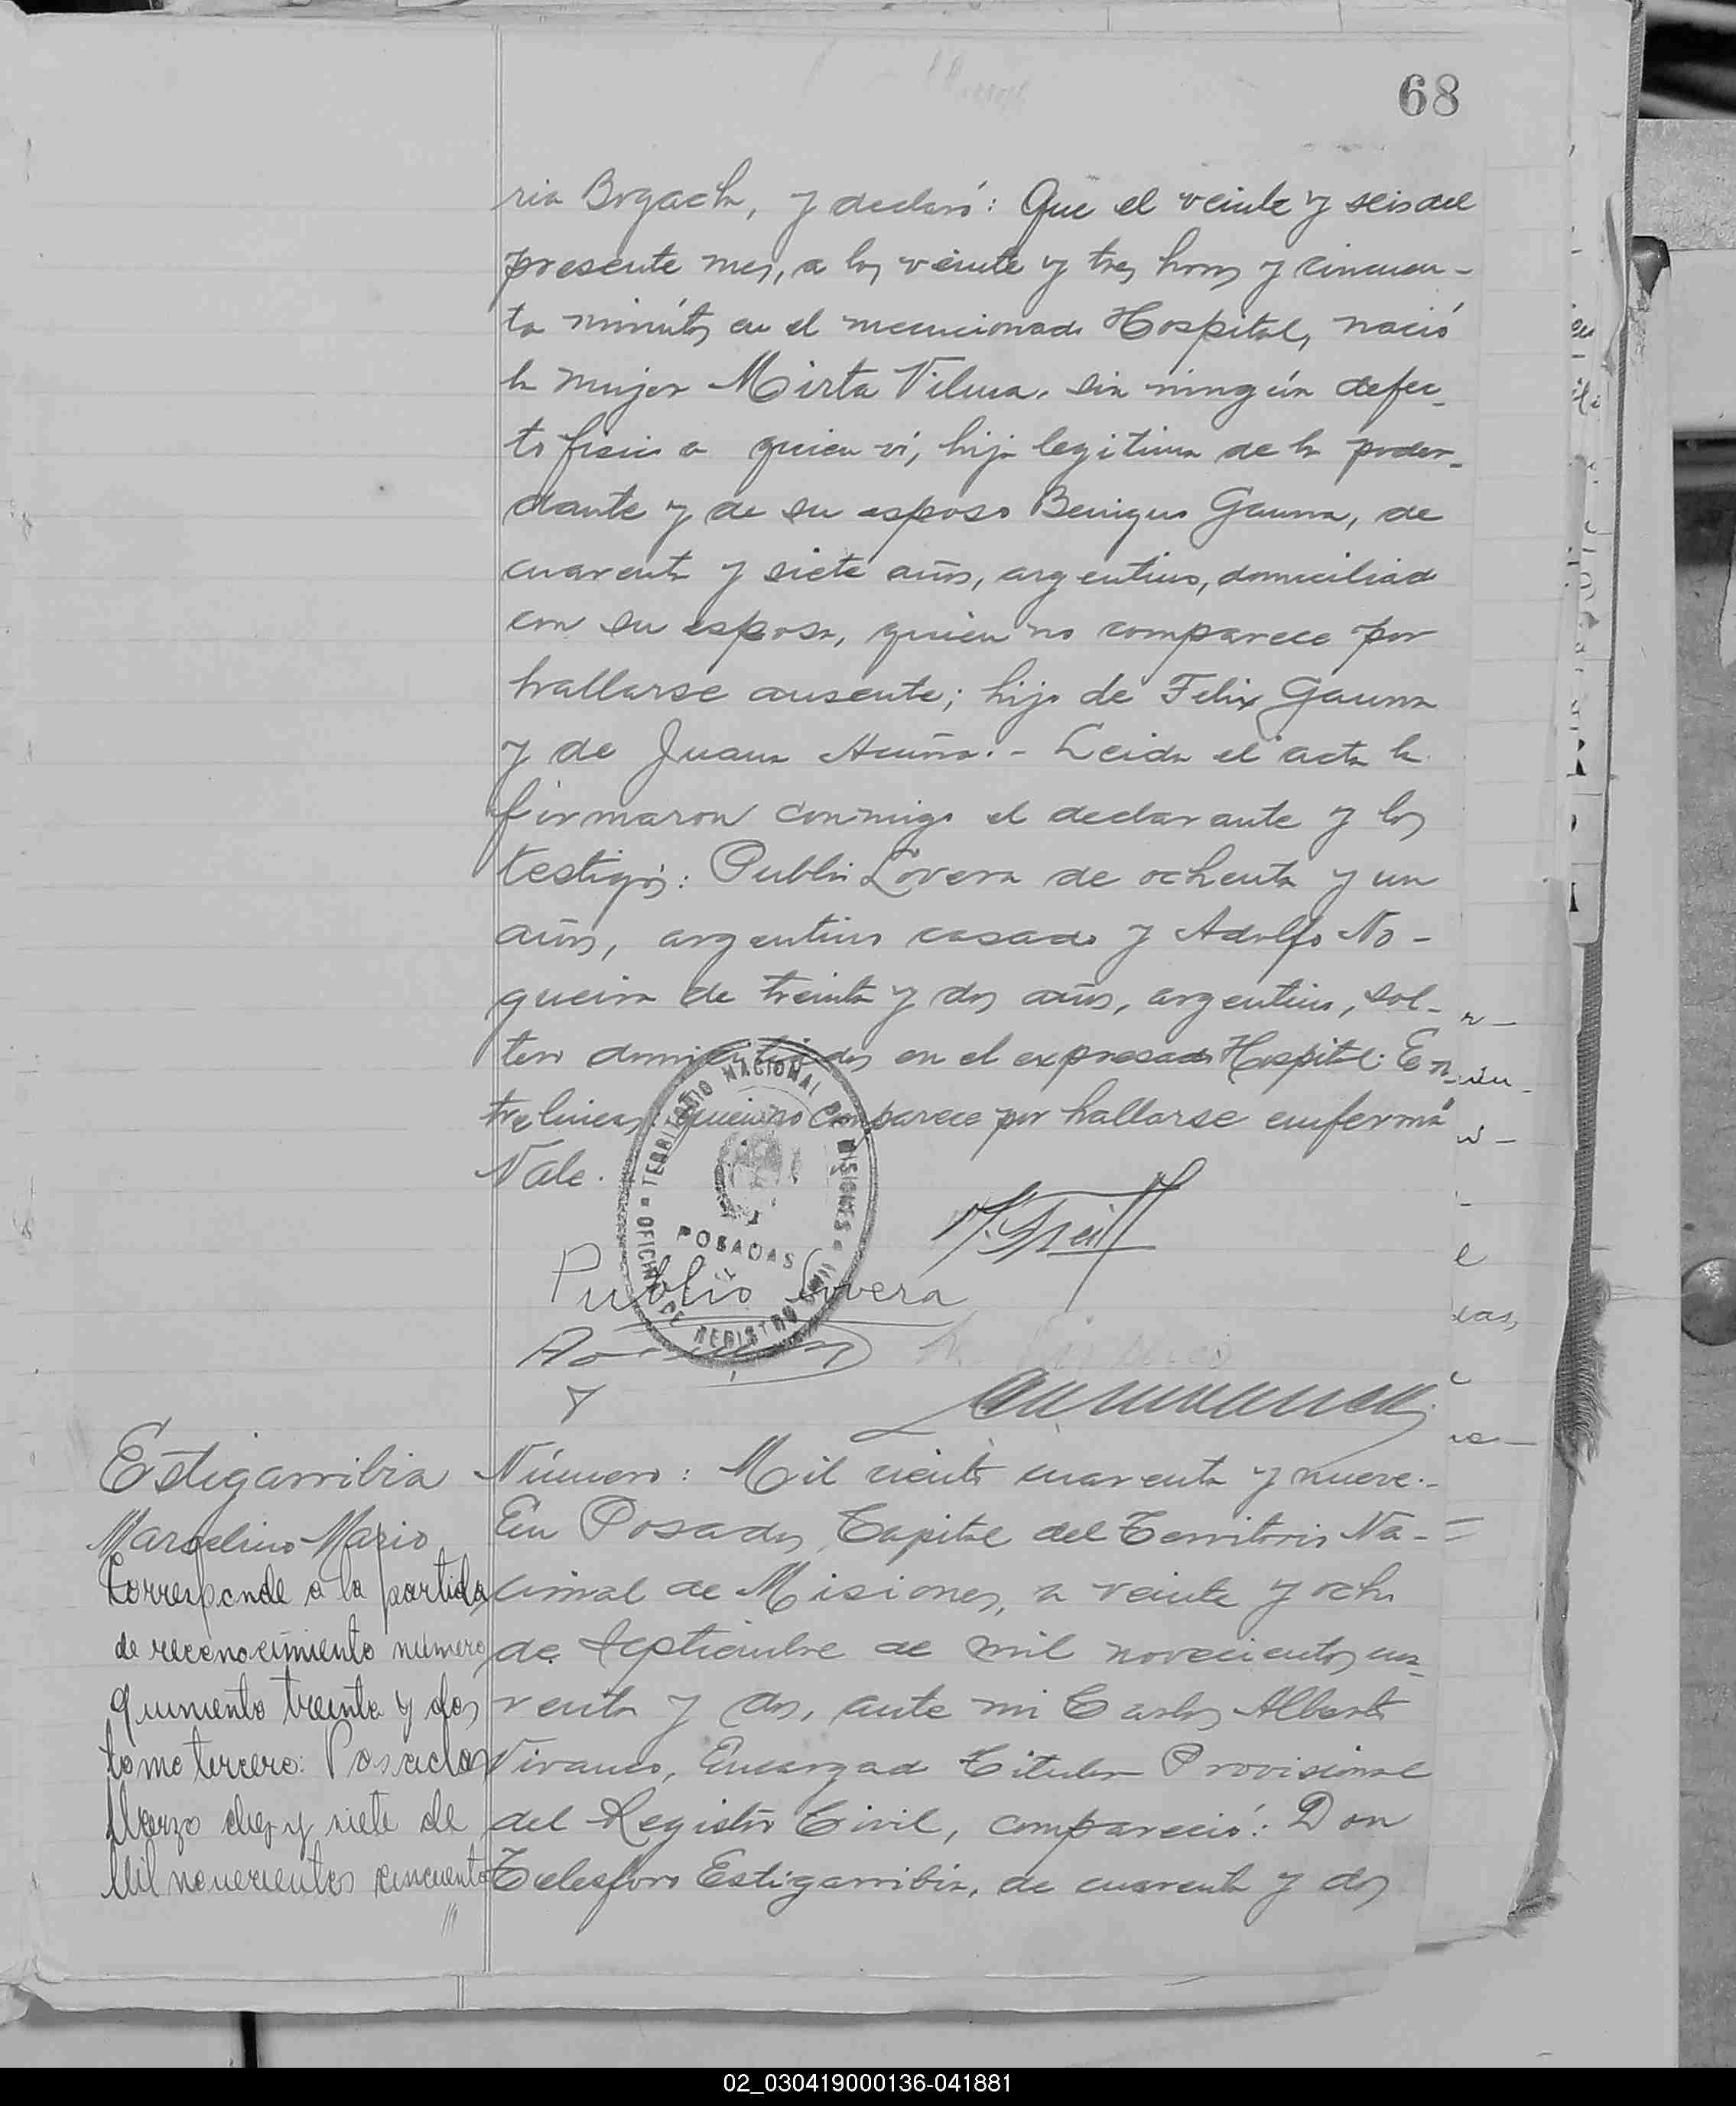 68
ria Bogach, y declaró: Que el veinte y seis del
presente mes, a las veinte y tres horas y cincuen-
ta minutos en el mencionado Hospital, nació
la mujer Mirta Vilma, sin ningún defec-
to físico a quien vi, hija legitima de la poder-
dante y de su esposo Benigno Gauna, de
cuarenta y siete años, argentino, domiciliado
con su esposa, quien no comparece por
hallarse ausente; hijo de Felix Gauna
y de Juana Acuña.- Leida el acta la
firmaron conmigo el declarante y los
testigos: Publio Lovera de ochenta y un
años, argentino casado y Adolfo No-
gueira de treinta y dos años, argentino, sol-
tero domiciliados en el expresado Hospital: En-
tre lineas: quien no comparece por hallarse enferma"
Vale.
TERRITORIO NACIONAL DE MISIONES
OFICINA DE REGISTRO CIVIL
POSADAS
Publio Lovera
Estigarribia
Marcelino Mario
Corresponde a la partida
de reconocimiento número
quiniento treinta y dos
tomo tercero: Posadas
Marzo diez y siete de
Mil novecientos cincuenta
Número: Mil ciento cuarenta y nueve.-
En Posadas, Capital del Territorio Na-
cional de Misiones, a veinte y ocho
de Septiembre de mil novecientos cua-
renta y dos, ante mi Carlos Alberto
Vivanco, Encargado Titular Provisional
del Registro Civil, compareció: Don
Telesforo Estigarribia, de cuarenta y dos
02_030419000136-041881